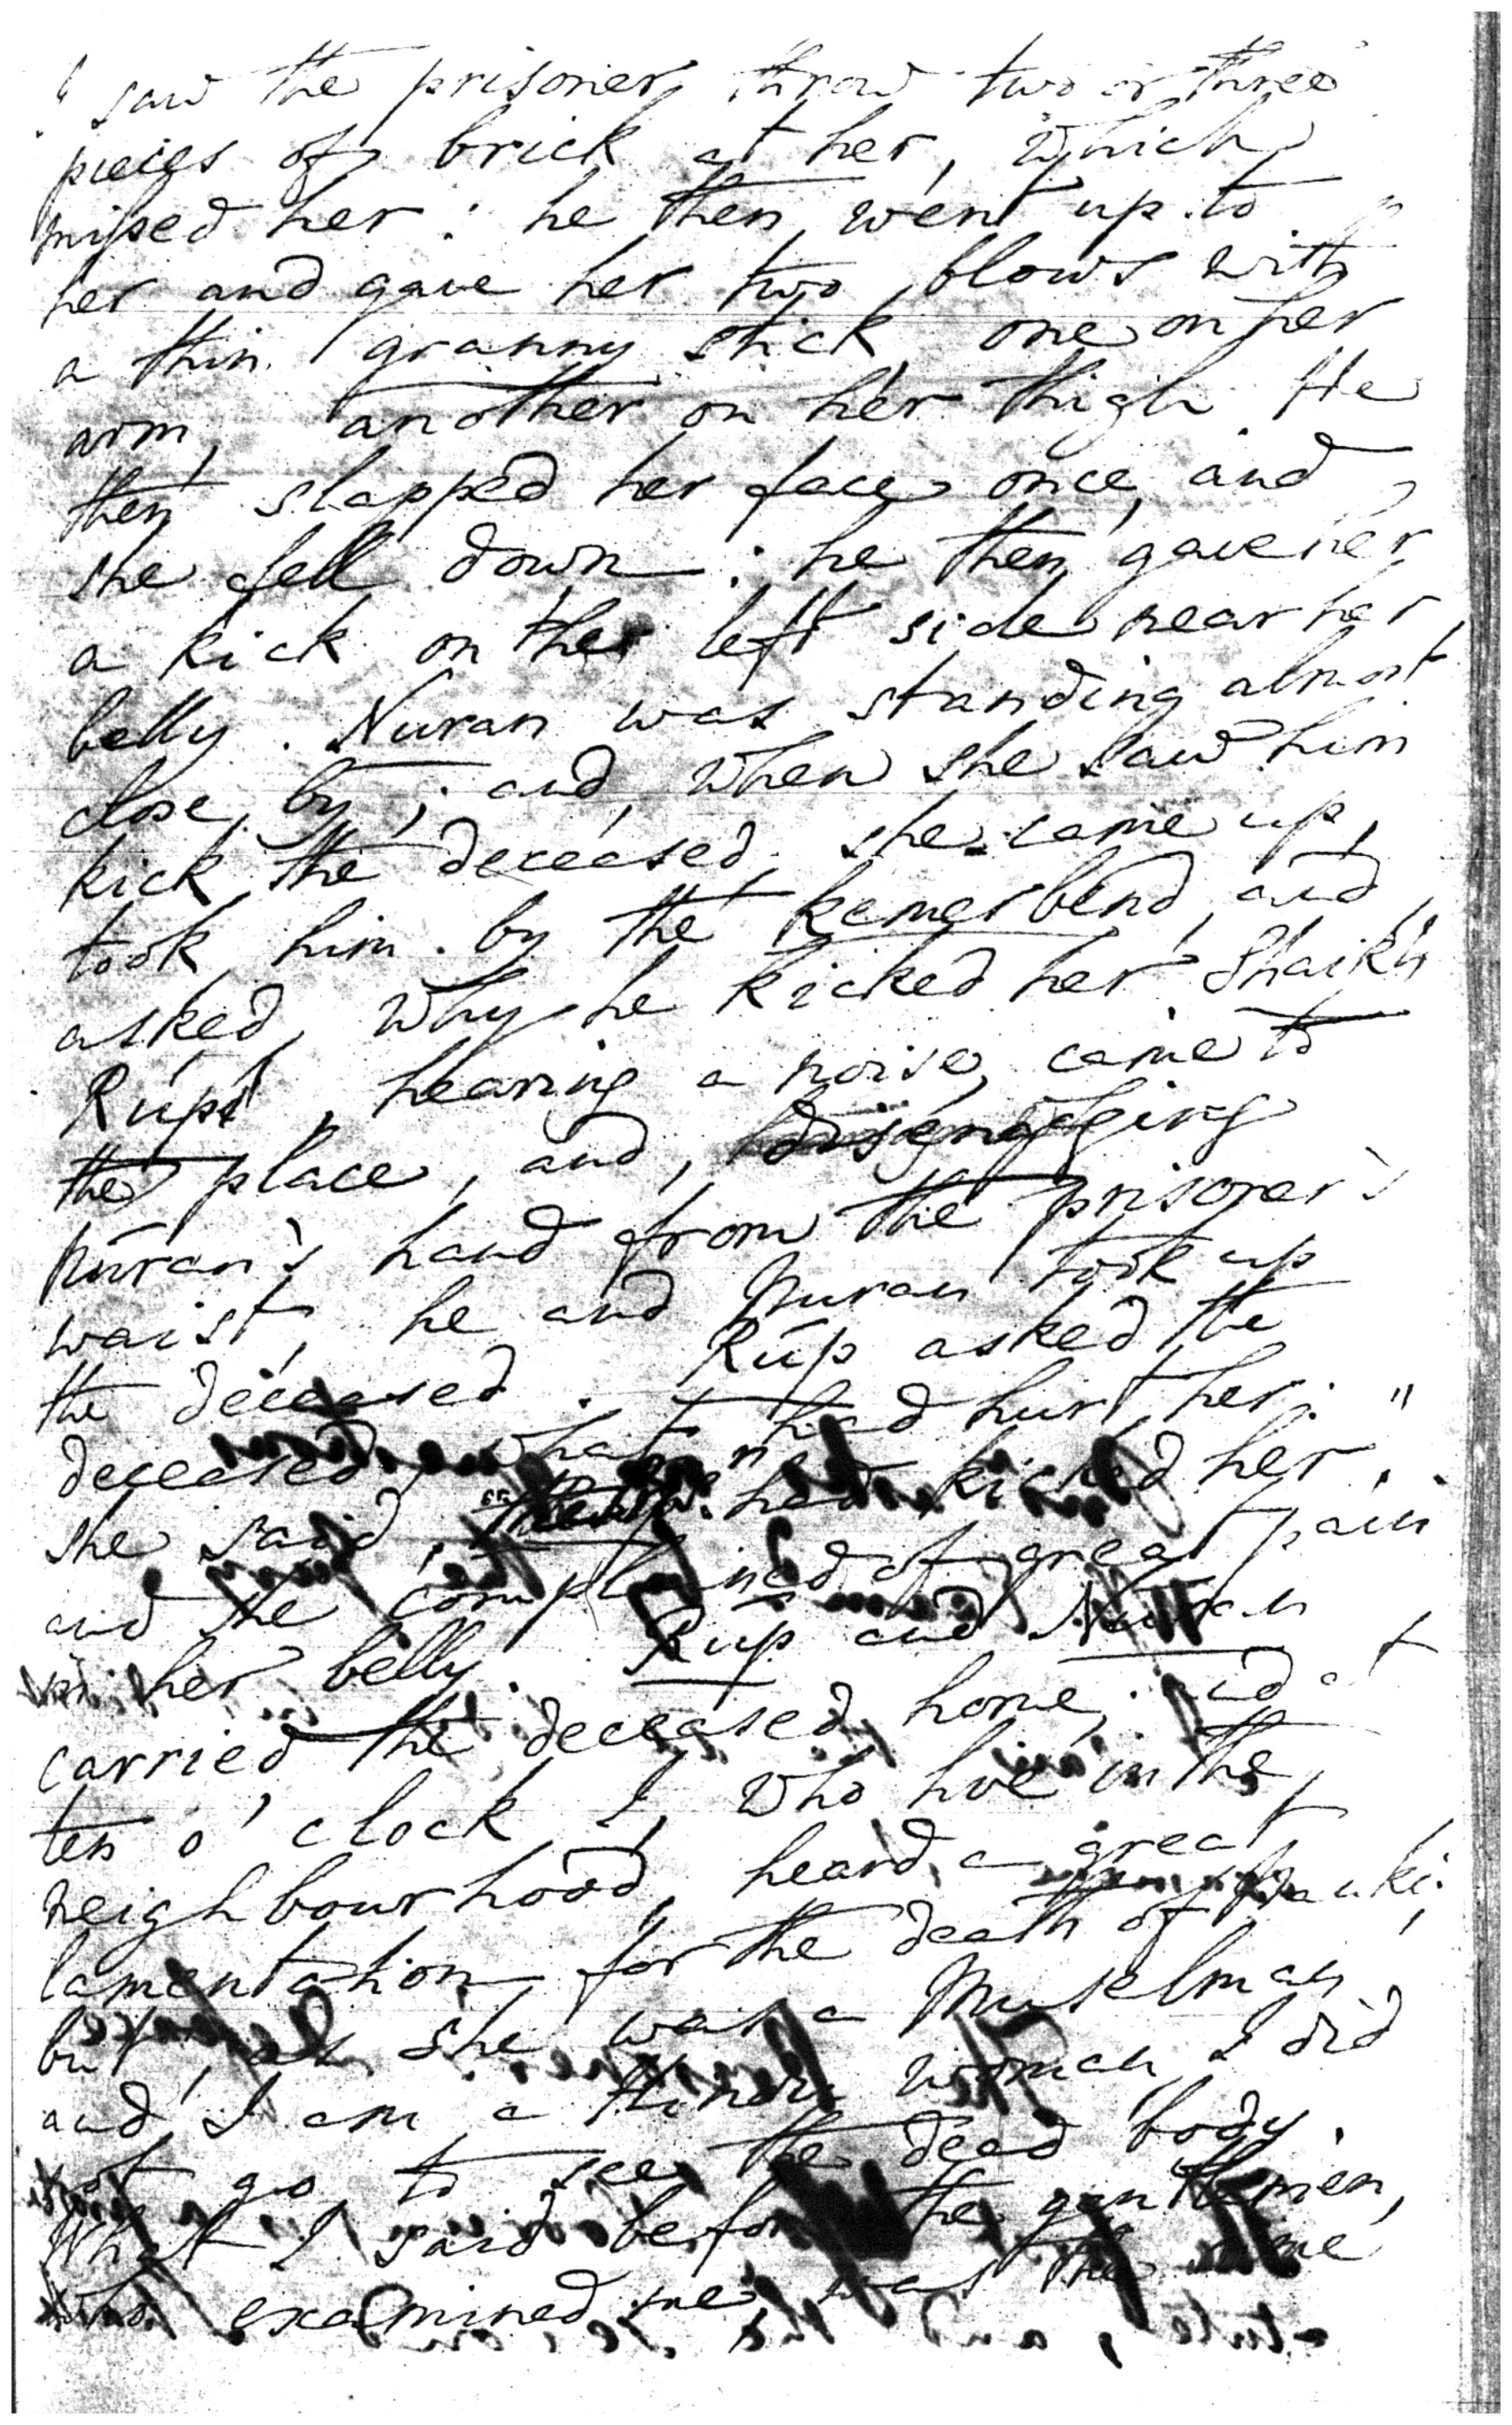 I saw the prisoner throw two or three
pieces of brick at her, which
missed her: he then went up to
her and gave her two blows with
a thin granny stick, one on her
arm, another on her thigh. He
then slapped her face once, and
she fell down: he then gave her
a kick on the left side near her
belly. Nuran was standing almost
close by; and, when she saw him
kick the deceased, she came up,
took him by the kemerbend, and
asked, why he kicked her. Shaikh
Rúp, hearing a noise, came to
the place, and, disengaging
Nuran's hand from the prisoner's
waist, he and Nuran took up
the deceased. Rúp asked the
deceased, what had hurt her: "
she said, had kicked her."
and she complained of great pain
in her belly. Rúp and Nuran
carried the deceased home; and at
ten o'clock I, who live in the
neighbourhood, heard a great
lamentation for the death of
but, as she was a Muselman
and I am a Hindu woman, I did
not go to see the dead body.
What I said before the gentlemen,
who examined me, was the same